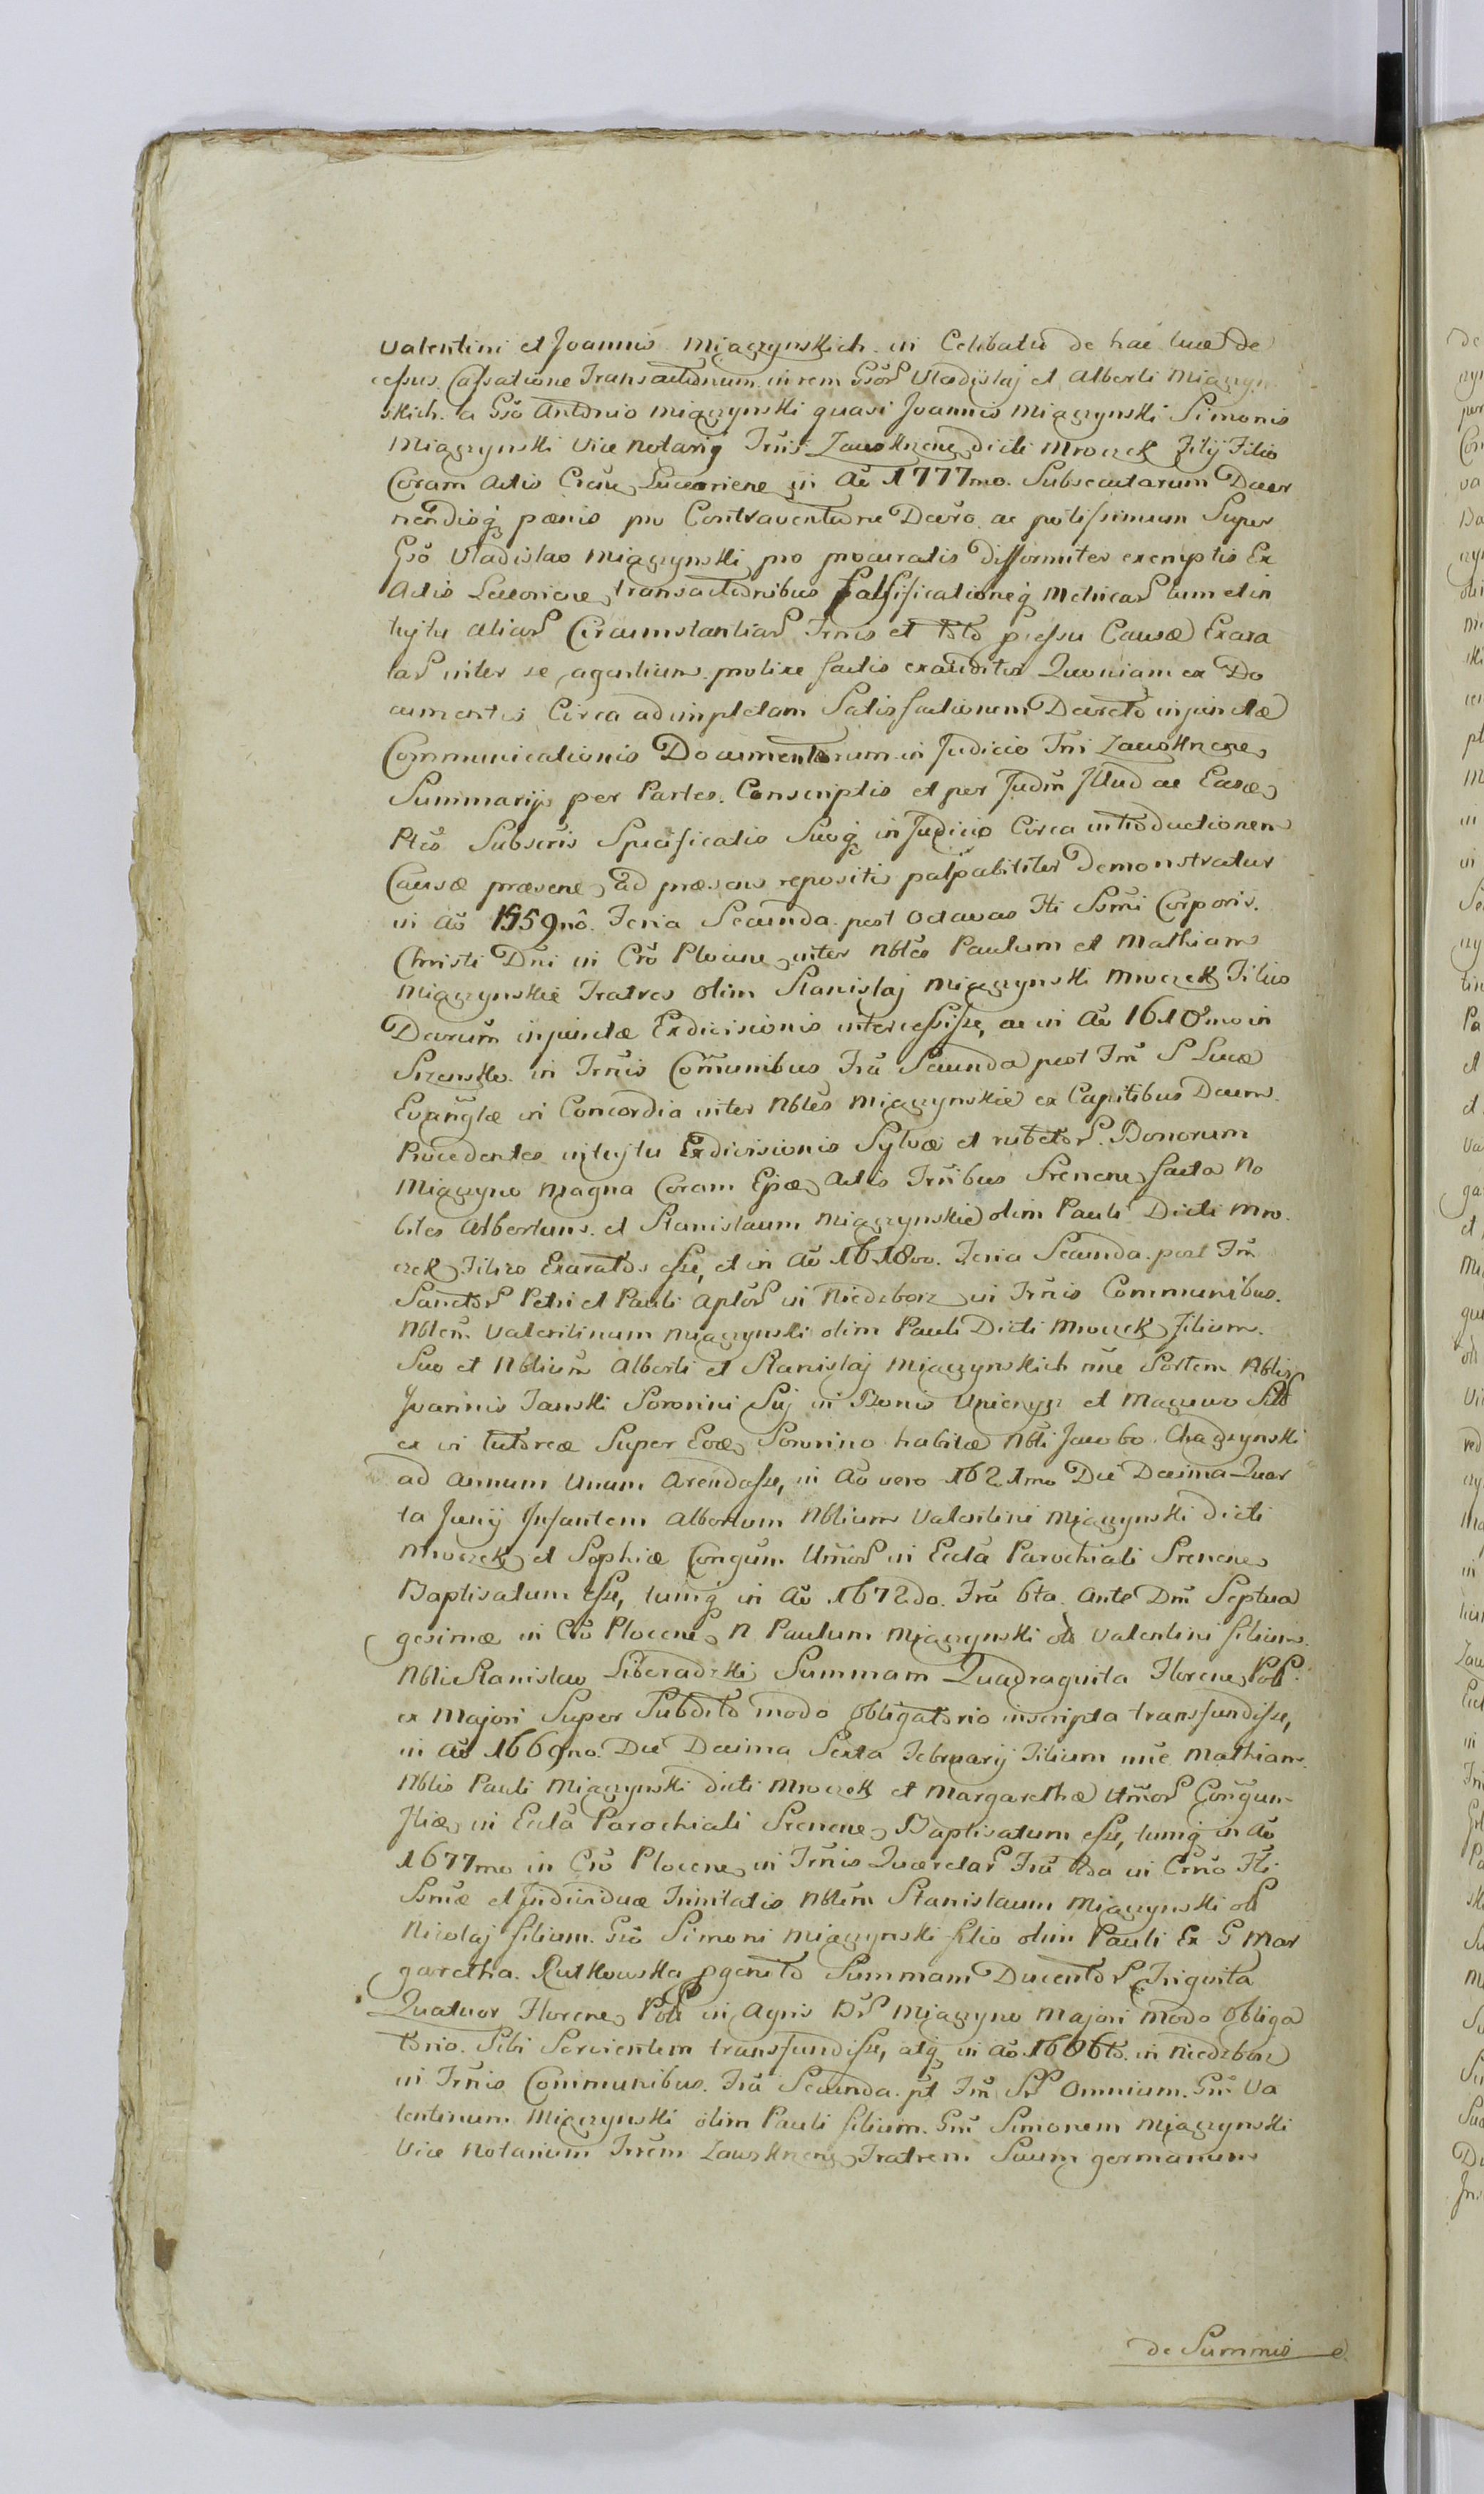 Valentini et Joannis Miączynskich in Celibatu de hac luce de
cessus. Cassatione Transactionum in rem Gsor Vladislaj et Alberti Miączyn
skich. a Gso Antonio Miączynski quasi Joannis Miączynski Simonis
Miączynski Vice Notarij Trris Zawskrzene dicti Mroczek Filij Filio
Coram Actis Luceoriene in Ao 1777mo. Subsecutarum Decer
nendisq pœnis pro Contraventione Decro ac potissimum Super
Gso Vladislao Miączynski pro procuratis difformiter exemptis Ex
Actis Luceoriene transactionibus falsificationeq Metricar tum et in
tuitu aliar Circumstantiar Trnis et toto pcessu Causæ Exara
tar inter se agentium prolixe factis exauditis Quoniam ex Do
cumentis Circa adimpletam Satisfactionem Decreto injunctæ
Communicationis Documentorum in Judicio Tri Zawskrzene
Summarijs per Partes. Conscriptis et per Judm Illud ac Easd
Ptes Subscris Specificatis Suoq in Judicio Circa introductionem
Causæ præsene ad præsens repositis palpabiliter Demonstratur
in Ao 1559no. Feria Secunda post Octavas Fti Ssmi Corporis.
Christi Dni in Cro Plocene inter Nbles Paulum et Mathiam
Miączynskie Fratres olim Stanislaj Miączynski Mroczek Filios
Decrum injunctæ Exdivisionis intercessisse, ac in Ao 1610mo in
Srzensko in Trnis Comunibus Fra Secunda post Fm S Lucæ
Evanglæ in Concordia inter Nbles Miączynskie ex Capitibus Decem.
Procedentes intuitu Exdivisionis Sylvæ et rubetor. Bonorum
Miączyno Magna Coram Actis Trribus Srenene facta No
biles Albertum. et Stanislaum Miączynskie olim Pauli Dicti Mro
czek Filios Exaratos esse, et in Ao 1618vo. Feria Secunda post Fm
Sanctor Petri et Pauli Aplor in Niedzborz in Trnis Communibus.
Nblem Valentinum Miączynski olim Pauli Dicti Mroczek Filium.
Suo et Nblium Alberti et Stanislaj Miączynskich nne Sortem Nblis
Joannis Janski Sororini Sui in Bonis Unierzyz et
ex vi tutoreæ Super Eod Sororino habitæ Nbli Jacobo Chądzynski
ad Annum Unum Arendasse, in Ao vero 1621mo Die Decima Quar
ta Junij Infantem Albertum Nblium Valentini Miączynski dicti
Mroczek et Sophiæ Congum Umor in Ecla Parochiali Srenene
Baptisatum esse, tumq in Ao 1672do. Fra 6ta. Ante Dm Septua
gesimæ in Cro Plocene N Paulum Miączynski ol Valentini filium.
Nbli Stanislao Sieradzki Summam Quadraginta Florene Pol
ex Majori Super Subdito modo obligatorio inscripta transfundisse,
in Ao 1669no. Die Decima Sexta Februarij Filium nne Mathiam
Nblis Pauli Miączynski dicti Mroczek et Margarethæ Umor Congum
in Ecla Parochiali Srenene Baptisatum esse, tumq in Ao
1677mo in Cro Plocene in Trnis Querelar Fra 2da in Crno Fti
Ssmæ et Individuæ Trinitatis Nblem Stanislaum Miączynski ol
Nicolaj filium. Gso Simoni Miączynski filio olim Pauli Ex G Mar
garetha Rutkowska pgenito Summam Ducentor Triginta
Quatuor Florene Pol in Agris Miączyno Majori modo obliga
torio. Sibi Servientem transfundisse, atq in Ao 1686to. in Niedzborz
in Trnis Communibus. Fra Secunda pt Fm Omnium. Gm Va
lentinum Miączynski olim Pauli filium. Gm Simonem Miączynski
Vice Notarium Trrem Zawskrzene Fratrem Suum germanum
de Summis